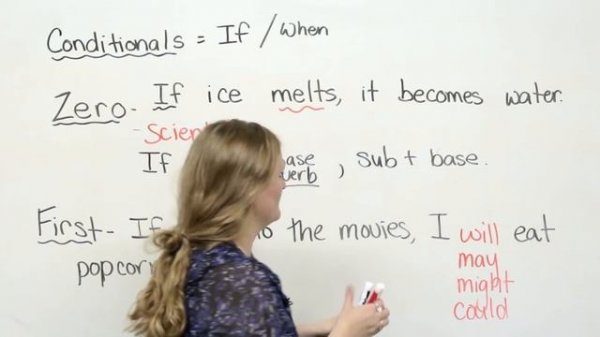 Conditionals = If / when
Zero - If ice melts, it becomes water.
- Scien
If base verb, sub + base.
First - If to the movies, I will eat
popcorn may
might
could